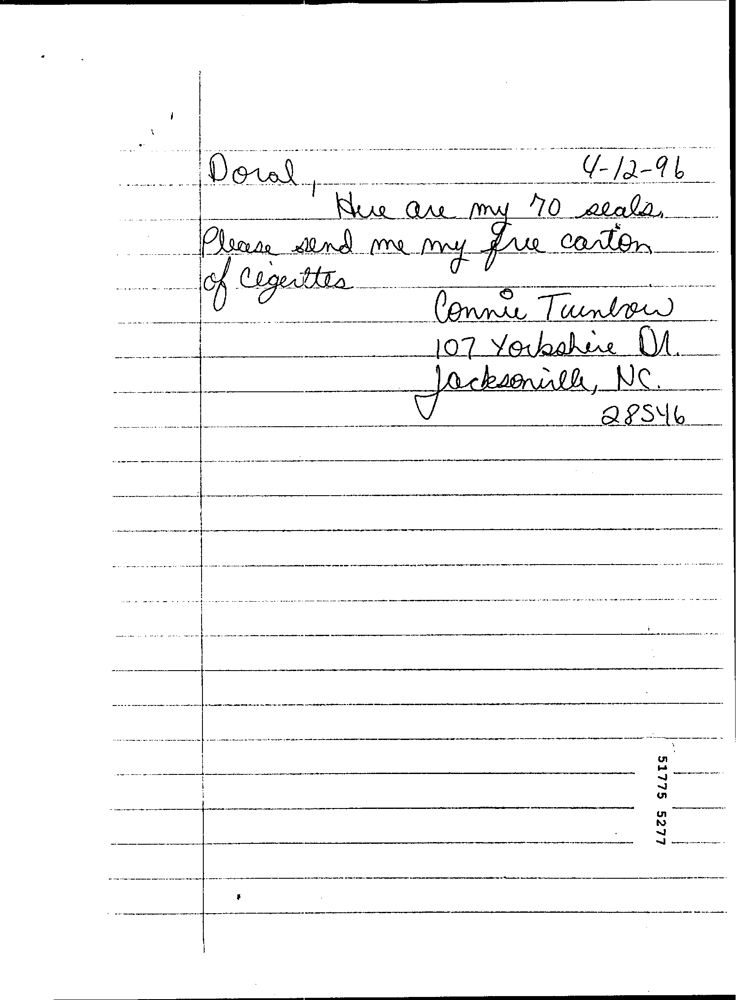 Doral, 4-12-96
Here are my 70 seals.
Please send me my free carton
of Cegerttes
Connie Turnbow
107 Yorkshire Dr.
Jacksonville, NC.
28546
51775 5277